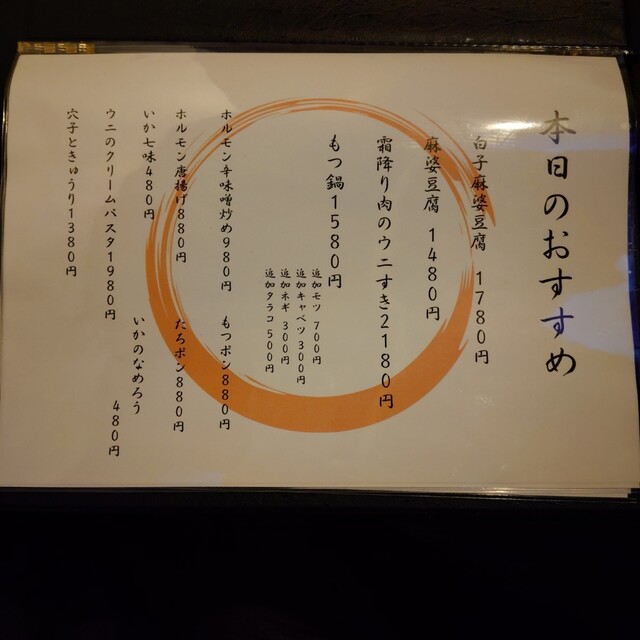 本日のおすすめ
白子麻婆豆腐 1780円
麻婆豆腐 1480円
霜降り肉のウニすき2180円
もつ鍋1580円
追加モツ 700円
追加キャベツ 300円
追加ネギ 300円
追加タラコ 500円
ホルモン辛味噌炒め980円
もつポン880円
ホルモン唐揚げ880円
たらポン880円
いか七味480円
いかのなめろう
480円
ウニのクリームパスタ1980円
穴子ときゅうり1380円